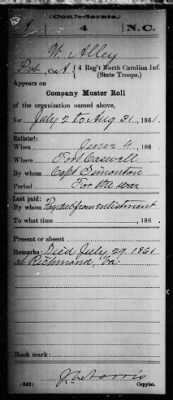 Confederate.
A 4 N.C.
W. Alley
Pvt., Co. A, 4 Reg't North Carolina Inf.
(State Troops.)
Appears on
Company Muster Roll
of the organization named above,
for July 2 to Aug 31, 1861.
Enlisted:
When June 4, 186
Where Fort Caswell
By whom Capt Simonton
Period For the war
Last paid:
By whom
To what time 186
Present or absent
Remarks: Died July 29 1861
at Richmond, Va
Book mark:
(642)
Copyist.